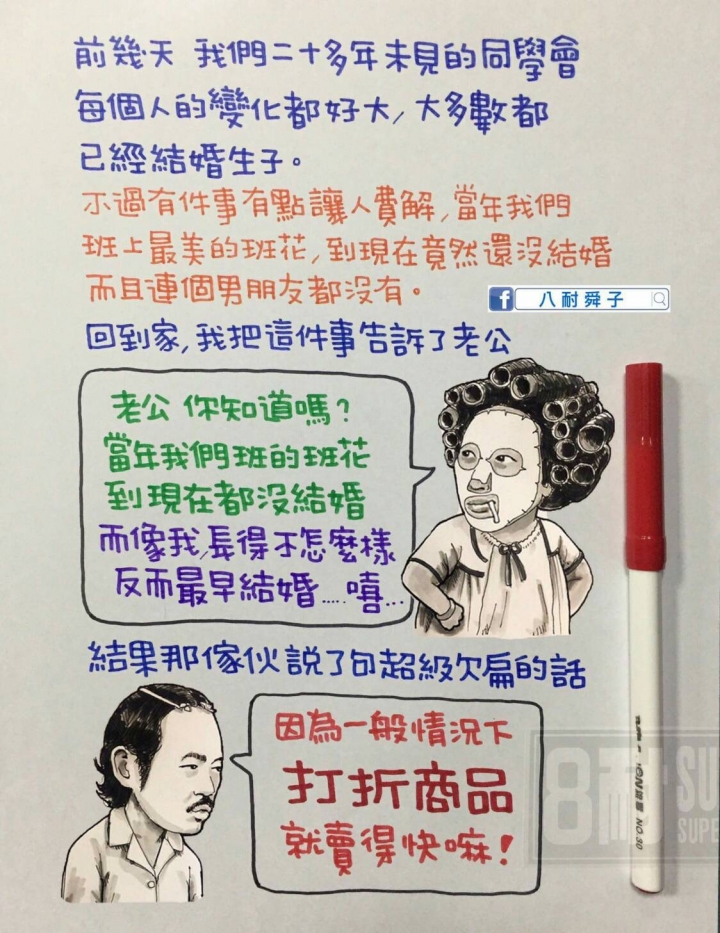 前幾天 我們二十多年未見的同學會
每個人的變化都好大，大多數都
已經結婚生子。
不過有件事有點讓人費解，當年我們
班上最美的班花，到現在竟然還沒結婚
而且連個男朋友都沒有。
f 八耐舜子
回到家，我把這件事告訴了老公
老公 你知道嗎？
當年我們班的班花
到現在都沒結婚
而像我，長得不怎麼樣
反而最早結婚.....嘻...
結果那傢伙說了句超級欠扁的話
因為一般情況下
打折商品
就賣得快嘛！
8耐
SU
SUPE
NO.50